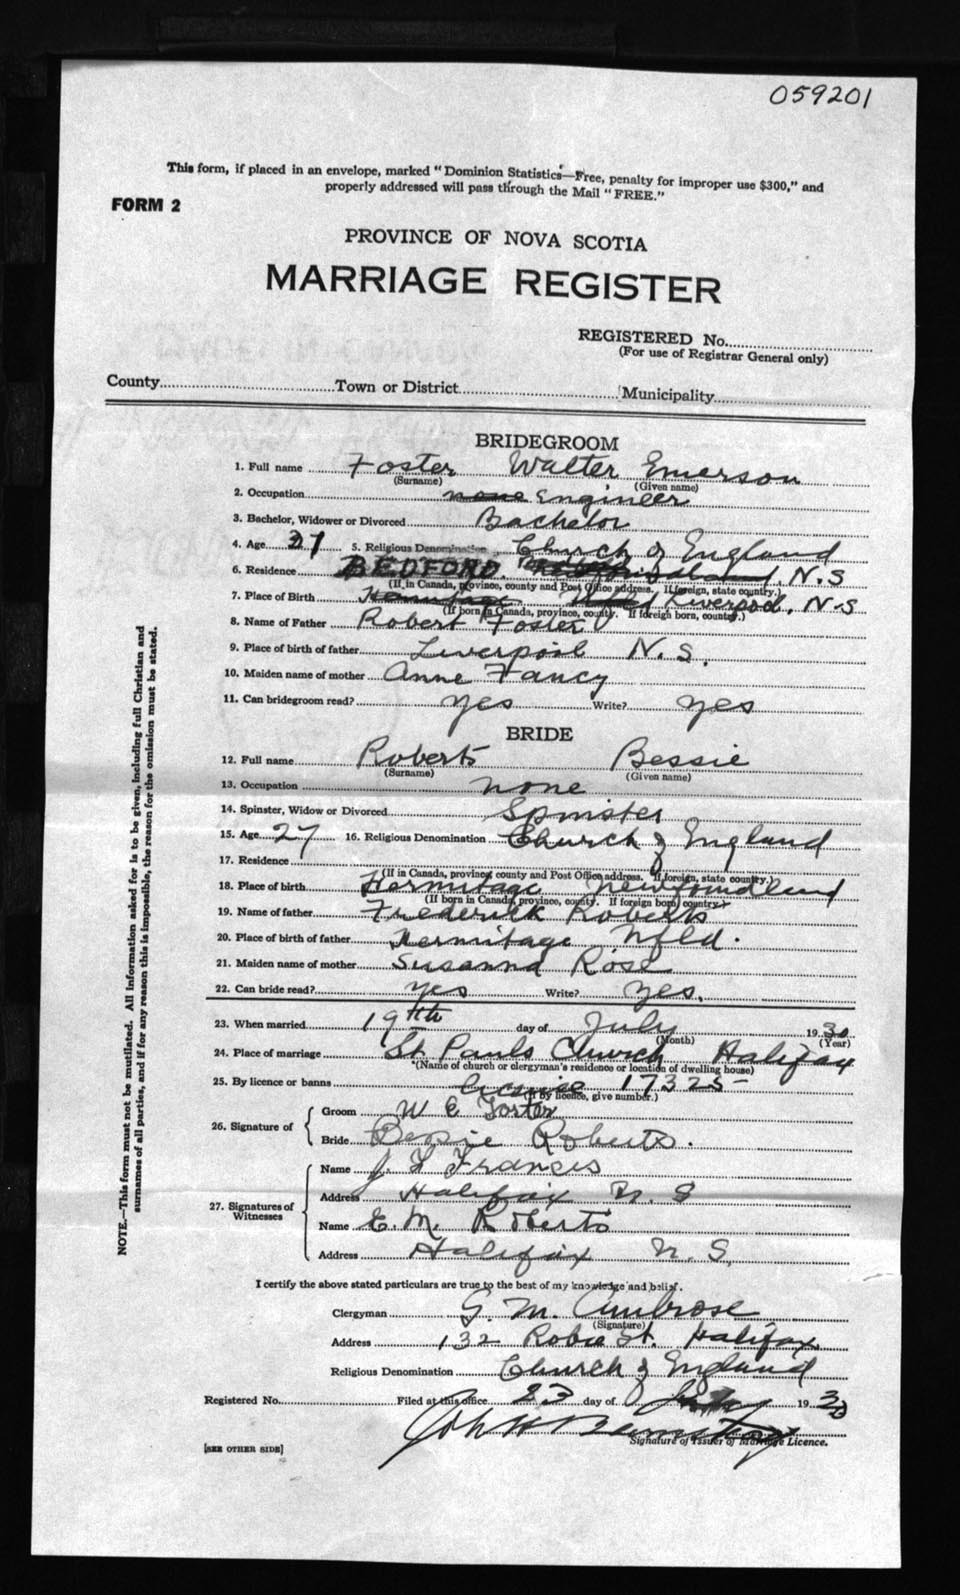 059201
This form, if placed in an envelope, marked "Dominion Statistics—Free, penalty for improper use $300," and
properly addressed will pass through the Mail "FREE."
FORM 2
PROVINCE OF NOVA SCOTIA
MARRIAGE REGISTER
REGISTERED No.
(For use of Registrar General only)
County Town or District Municipality
BRIDEGROOM
1. Full name Foster Walter Emerson
(Surname) (Given name)
2. Occupation none Engineer
3. Bachelor, Widower or Divorced Bachelor
4. Age 27 5. Religious Denomination Church of England
6. Residence BEDFORD. N.S
(If in Canada, province, county and Post Office address. If foreign, state country.)
7. Place of Birth Hermitage Nfld Liverpool, N-S
(If born in Canada, province, county. If foreign born, country.)
8. Name of Father Robert Foster
9. Place of birth of father Liverpool N.S.
10. Maiden name of mother Anne Fancy
11. Can bridegroom read? yes Write? yes
BRIDE
12. Full name Roberts Bessie
(Surname) (Given name)
13. Occupation none
14. Spinster, Widow or Divorced Spinster
15. Age 27 16. Religious Denomination Church of England
17. Residence
(If in Canada, province, county and Post Office address. If foreign, state country.)
18. Place of birth Hermitage Newfoundland
(If born in Canada, province, county. If foreign born, country.)
19. Name of father Frederick Roberts
20. Place of birth of father Hermitage Nfld.
21. Maiden name of mother Susanna Rose
22. Can bride read? yes Write? yes.
23. When married 19th day of July 1930
(Month) (Year)
24. Place of marriage St. Pauls Church Halifax
*(Name of church or clergyman's residence or location of dwelling house)
25. By licence or banns licence 17325-
(If by licence, give number.)
26. Signature of
Groom W E Foster
Bride Bessie Roberts.
27. Signatures of Witnesses
Name J. L Francis
Address Halifax N. S
Name E. M. Roberts
Address Halifax N. S.
I certify the above stated particulars are true to the best of my knowledge and belief.
Clergyman G. M. Ambrose
(Signature)
Address 132 Robie St. Halifax
Religious Denomination Church of England
Registered No. Filed at this office 23 day of July 1930
Signature of Issuer of Marriage Licence.
[SEE OTHER SIDE]
NOTE.—This form must not be mutilated. All information asked for is to be given, including full Christian and
surnames of all parties, and if for any reason this is impossible, the reason for the omission must be stated.